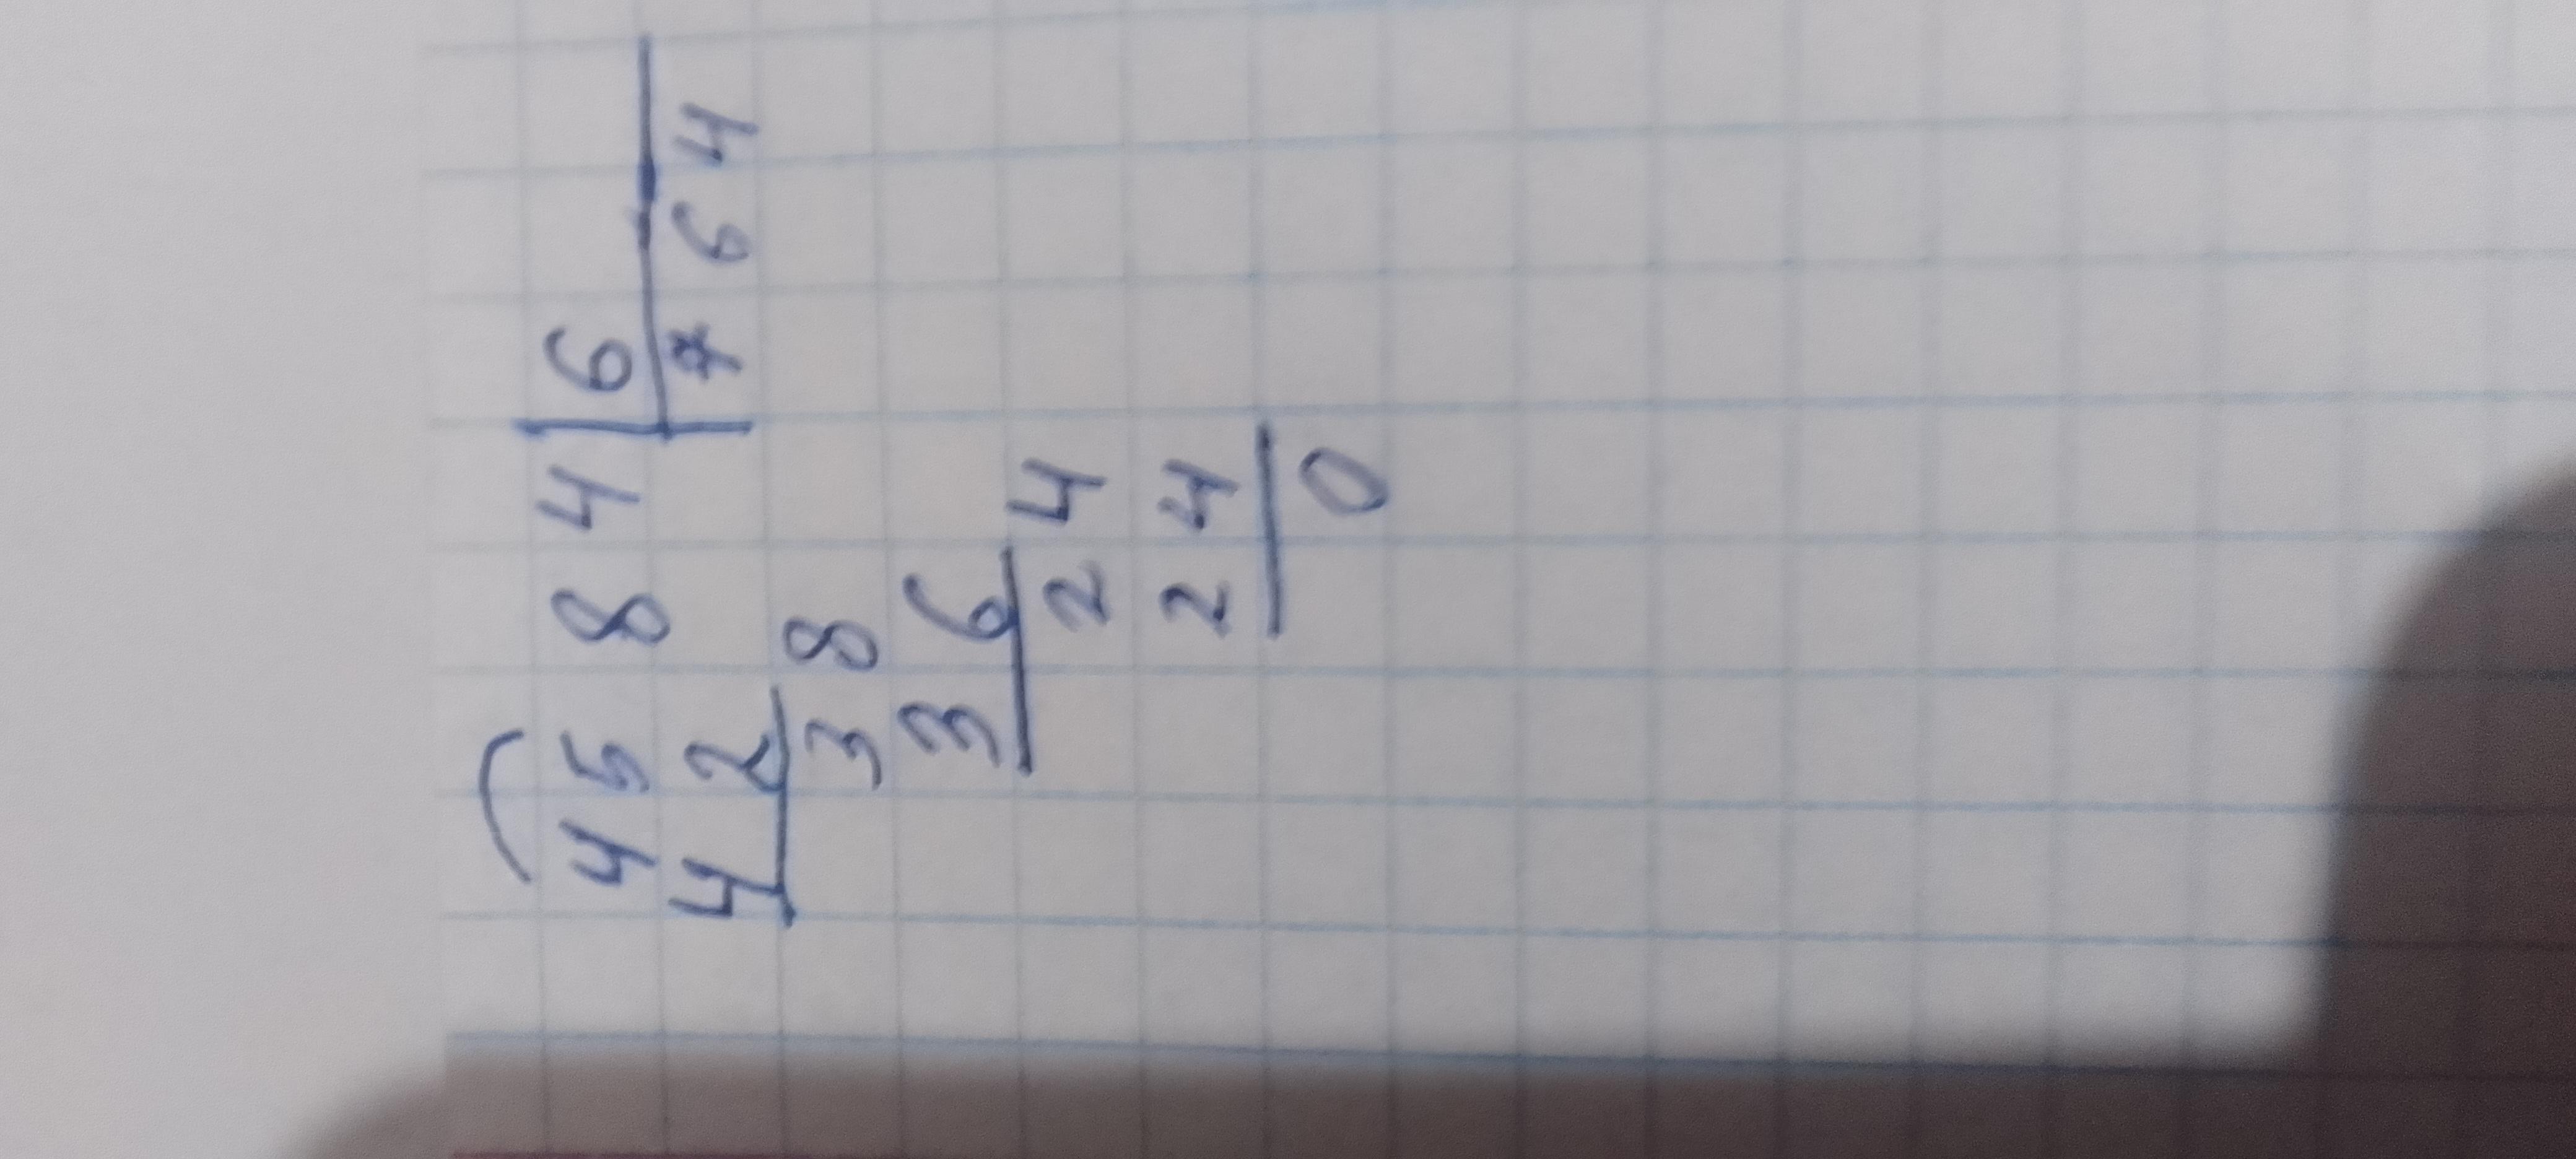 4584 | 6
42 | 764
38
36
24
24
0